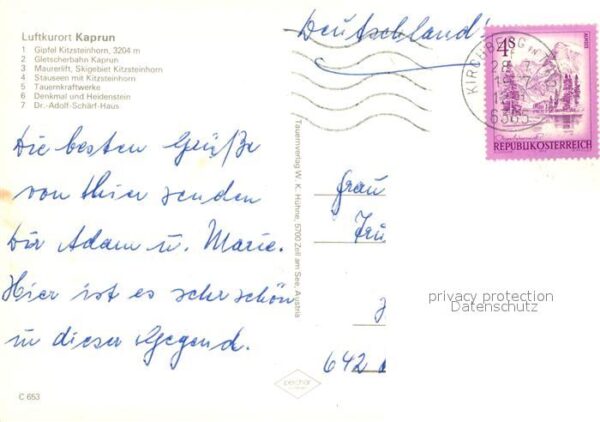 Luftkurort Kaprun
1 Gipfel Kitzsteinhorn, 3204 m
2 Gletscherbahn Kaprun
3 Maurerlift, Skigebiet Kitzsteinhorn
4 Stauseen mit Kitzsteinhorn
5 Tauernkraftwerke
6 Denkmal und Heidenstein
7 Dr.-Adolf-Schärf-Haus
Die besten Grüße
von hier senden
Dir Adam u. Marie.
Hier ist es sehr schön
in dieser Gegend.
C 653
Tauernverlag W. K. Hühne, 5700 Zell am See, Austria
Deutschland!
4S
REPUBLIK ÖSTERREICH
KIRCHBERG IN
6365
Frau
642
privacy protection
Datenschutz